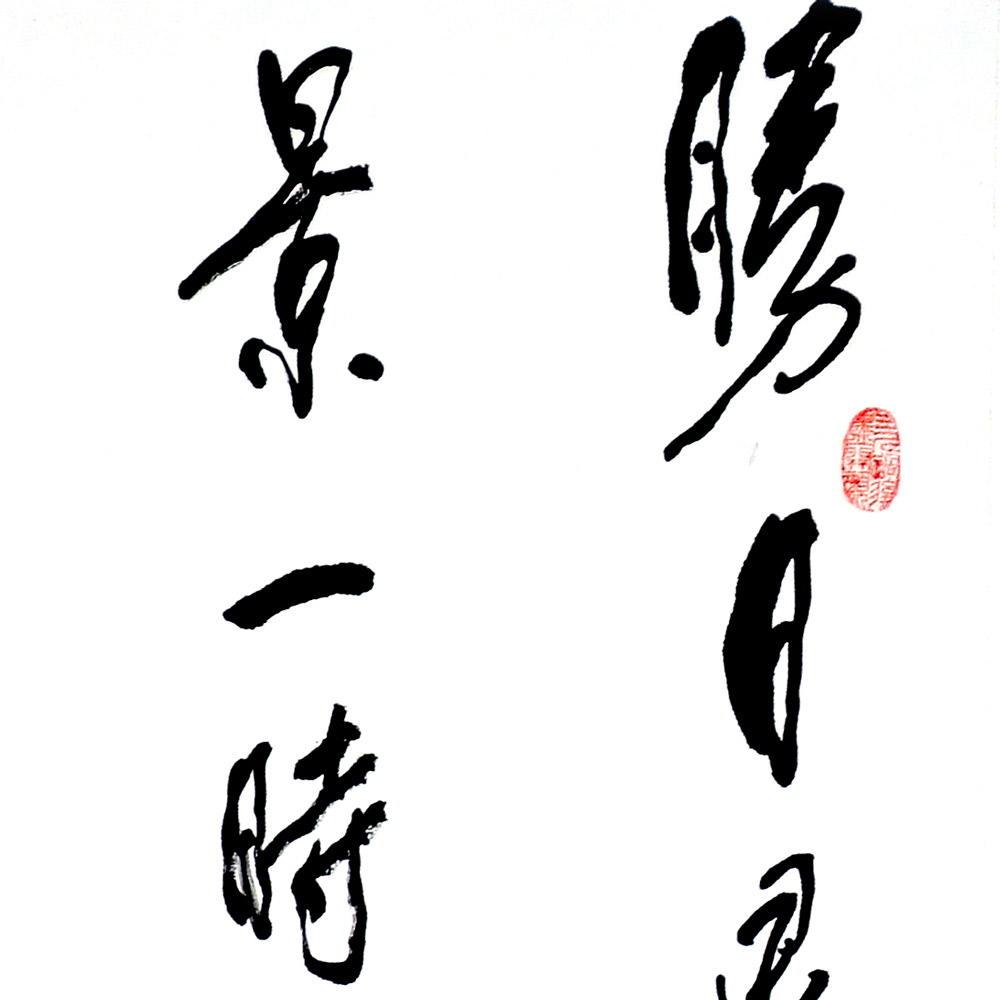 勝日尋
景一時